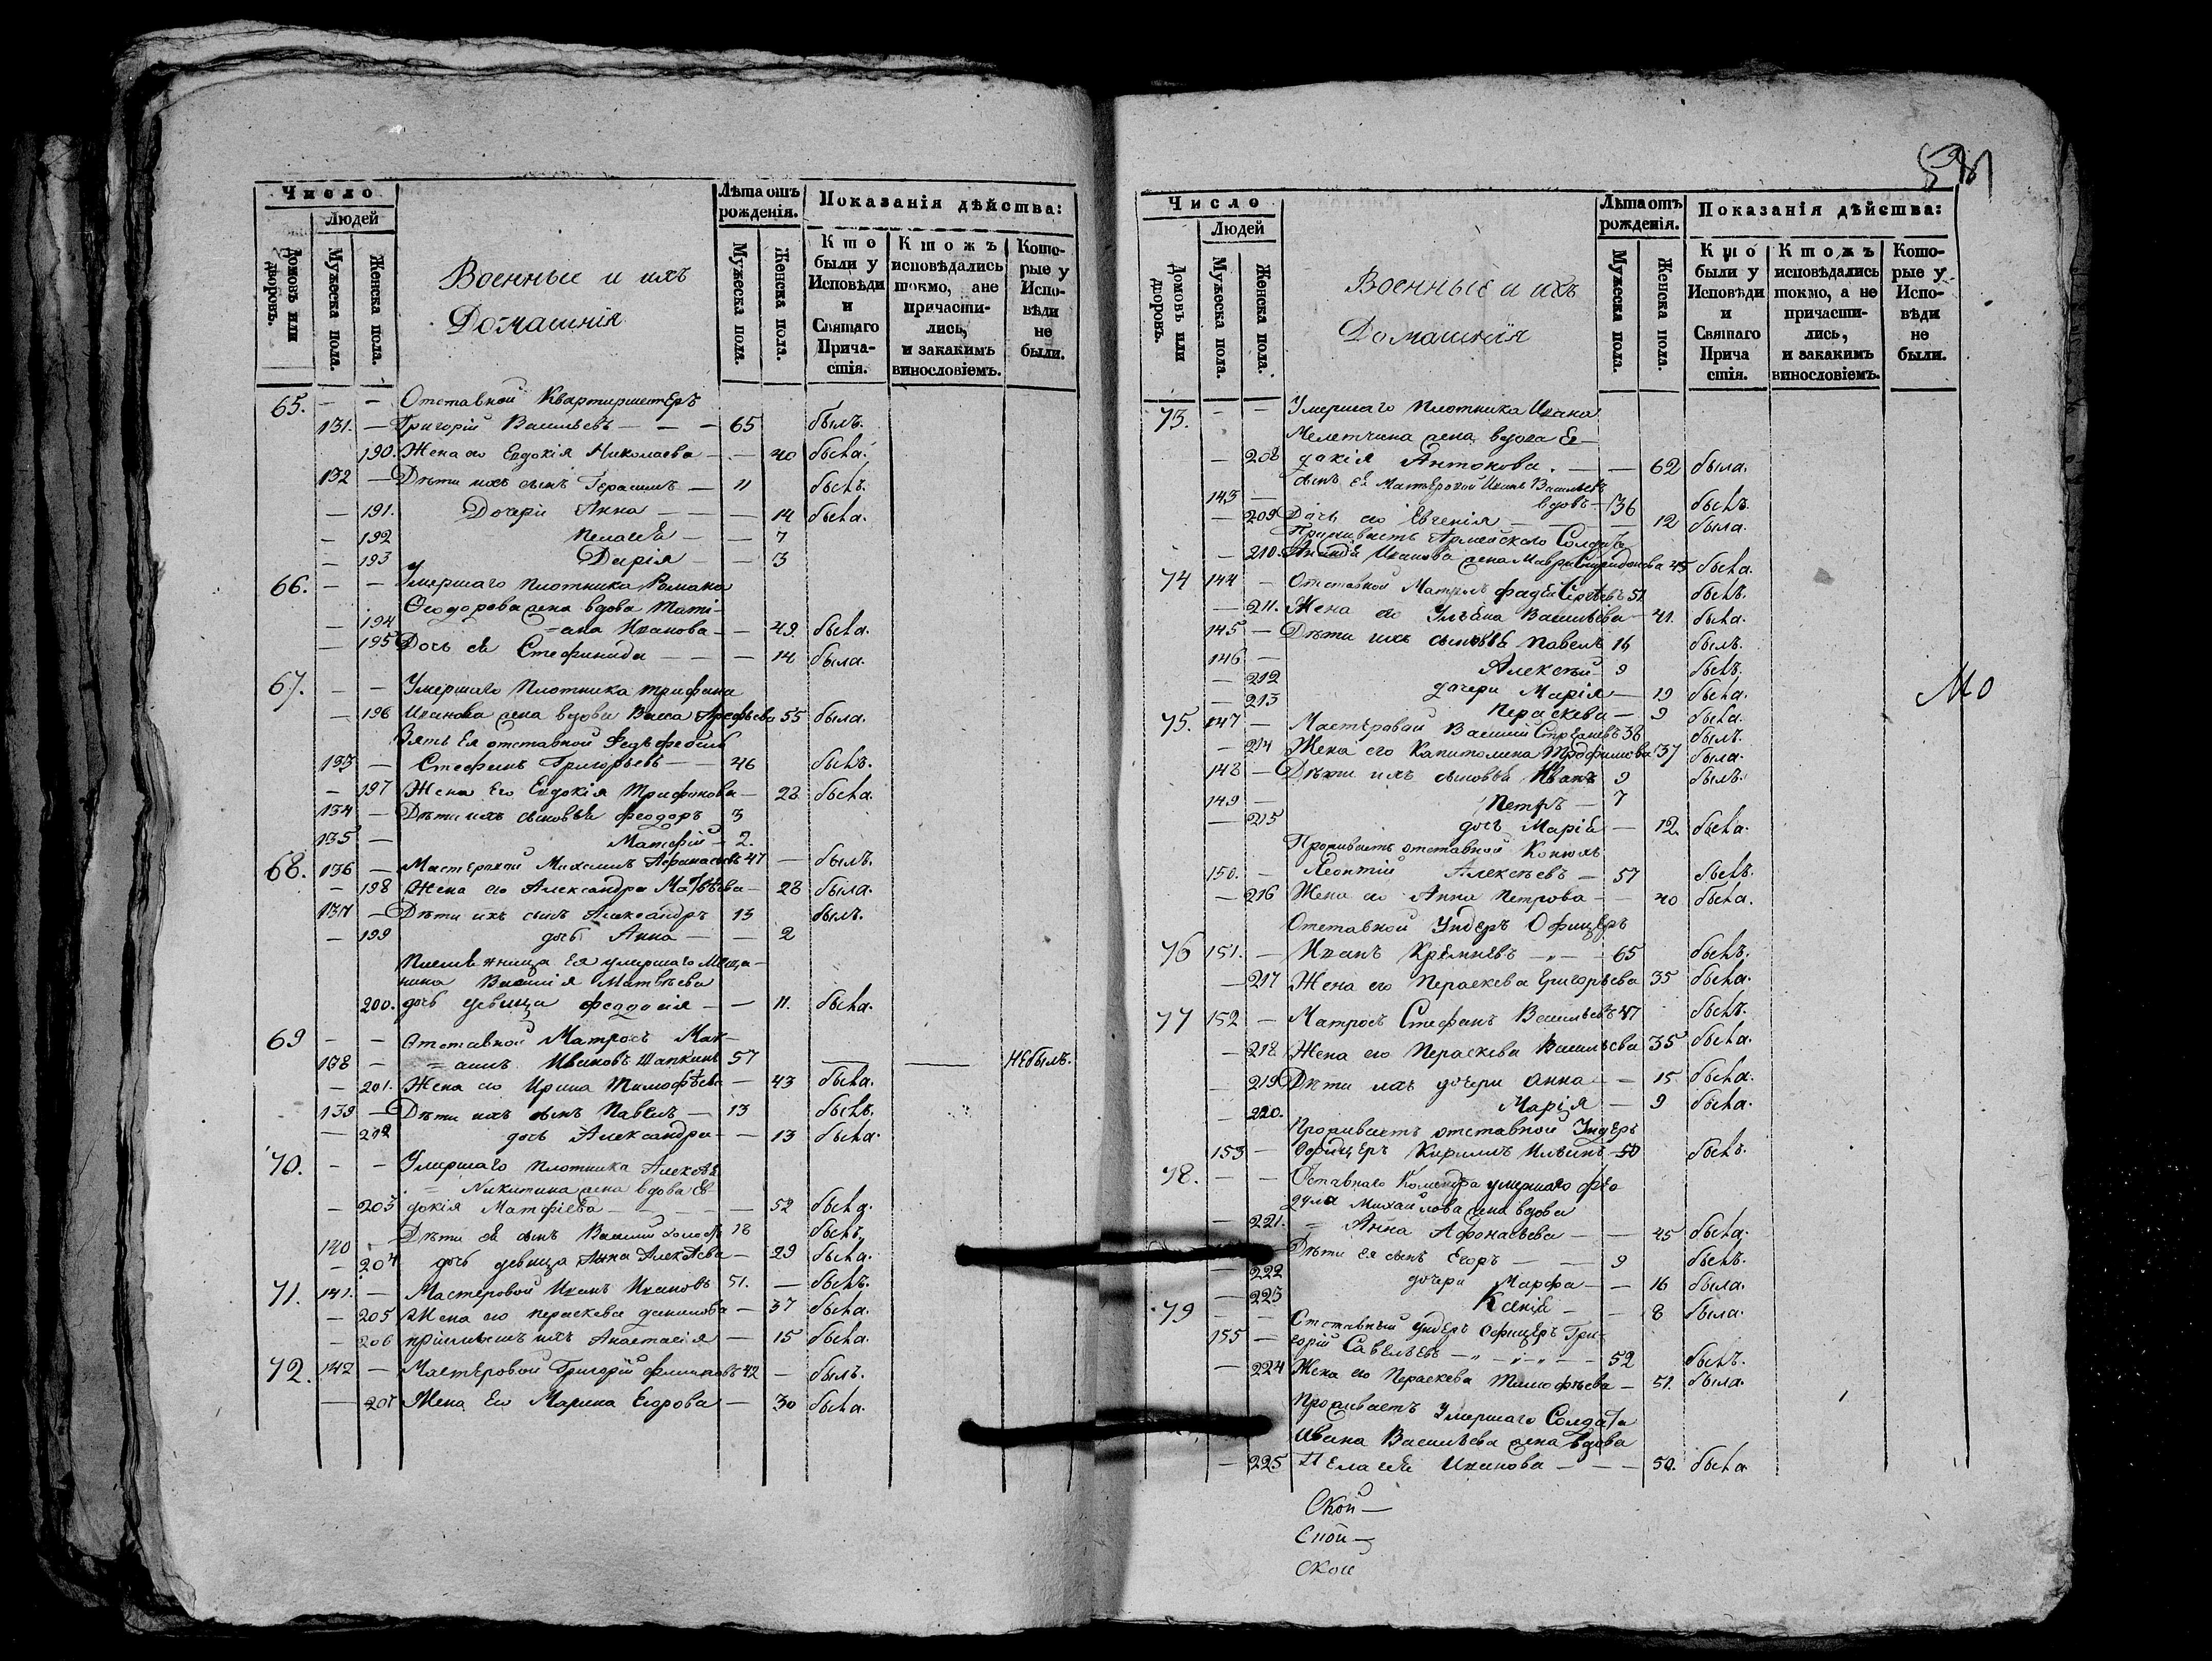 Число
Людей
Домовъ или дворовъ.
Мужеска пола.
Женска пола.
Военные и ихъ
Домашнія
Лѣта отъ рожденія.
Мужеска пола.
Женска пола.
Показанія дѣйства:
Кто были у Исповѣди и Святаго Причастія.
Ктожъ исповѣдались токмо, ане причастились, и закакимъ винословіемъ.
Которые у Исповѣди не были.
65. — — Отставной Квартирмистеръ
131. — Григорій Васильевъ — — — 65 былъ.
190. Жена его Евдокія Николаева — — 40 была.
132 — Дѣти ихъ сынъ Герасимъ — 11 былъ.
— 191. Дочери Анна — — — 14 была.
— 192 Пелагея — — 7
— 193 Дарія — — 3
66. — — Умершаго плотника Романа
Ѳеодорова жена вдова Тати-
— 194 =ана Иванова — — 49. была.
— 195 Дочь ея Стефанида — — — 14 была.
67. — — Умершаго плотника Трифона
— 196 Иванова жена вдова Васа Арефьева 55 была.
Зять Ея отставной
133 — Стефанъ Григорьевъ — — 46 былъ.
— 197 Жена Его Евдокія Трифонова — 28 была.
134 — Дѣти ихъ сыновья Феодоръ 3
135 — Матфій — 2.
68. 136 — Мастеровой Михаилъ Афанасьевъ 47 — былъ.
— 198 Жена его Александра Матвѣева — 28 была.
137 — Дѣти ихъ сынъ Александръ 13 былъ.
— 199 дочь Анна — — 2
Племянница Ея умершаго Меща-
нина Василія Матвѣева
200. дочь девица Феодосія — — 11. была.
69 — — Отставной Матросъ
138 — Ивановъ Шапкинъ 57 — — Небылъ.
— 201. Жена его Ирина Тимофѣева — 43 была.
139 — Дѣти ихъ сынъ Павелъ — 13 былъ.
— 202 дочь Александра — — 13 была.
70. — — Умершаго плотника Алексѣя
= Никитина жена вдова Ев
— 203 докія Матфіева — — — — 52 была.
140 — Дѣти ея сынъ Василій холостъ 18 былъ.
— 204 дочь девица Анна Алексѣева — 29 была.
71. 141. — Мастеровой Иванъ Ивановъ 51. — былъ.
— 205 Жена его Пераскева Данилова — 37 была.
— 206 Пріемышъ ихъ Анастасія — 15 была.
72. 142 — Мастеровой Григорій Филиповъ 42 — былъ.
— 207 Жена Его Марина Егорова — 30 была.
Число
Людей
Домовъ или дворовъ.
Мужеска пола.
Женска пола.
Военные и ихъ
Домашнія
Лѣта отъ рожденія.
Мужеска пола.
Женска пола.
Показанія дѣйства:
Кто были у Исповѣди и Святаго Прича стія.
Ктожъ исповѣдались токмо, а не причастились, и закакимъ винословіемъ.
Которые у Исповѣди не были.
73. — — Умершаго плотника Ивана
жена вдова Ев-
— 208 докія Антонова. — — 62 была.
сынъ ея Мастеровой Иванъ Васильевъ
143 — вдовъ — 36 былъ.
— 209 Дочь его Евгенія — — — 12 была.
Проживаетъ Армейскаго Солдата
— 210. Иванова жена Мавра Спиридонова 45 была.
74 144 — Отставной Матросъ Фадей Сергѣевъ 51. былъ.
— 211. Жена его Ульяна Васильева — 41. была.
145 — Дѣти ихъ сыновья Павелъ 16 былъ.
146 — Алексѣй — 9 былъ.
— 212 дочери Марія — 19 была.
— 213 Пераскева — 9 была.
75. 147 — Мастеровой Василій 36 былъ.
— 214 Жена его Капитолина Трофимова 37 была.
148 — Дѣти ихъ сыновья Иванъ 9 былъ.
149 — Петръ — 7
— 215 дочь Марія — 12. была.
Проживаетъ отставной Конюхъ
150. — Леонтій Алексѣевъ — 57 былъ.
— 216 Жена его Анна Петрова — — 40 была.
Отставной Ундеръ Офицеръ
76 151. — Иванъ Кремневъ — „ — — 65 былъ.
— 217 Жена его Пераскева Григорьева 35 была.
77 152 — Матросъ Стефанъ Васильевъ 47 былъ.
— 218 Жена его Пераскева Васильева 35 была.
— 219 Дѣти ихъ дочери Анна — — 15. была.
— 220. Марія — 9 была.
Проживаетъ отставной Ундеръ
153 — Офицеръ Кирилъ Ильинъ — 50 былъ.
78. — — умершаго Фео
дула Михайлова жена вдова
— 221. = Анна Афонасьева — — 45 была.
Дѣти ея сынъ Егоръ — — 9 былъ.
— 222 дочери Марфа — — 16 была.
— 223 Ксенія — — 8 была.
79 — — Отставный Ундеръ Офицеръ Гри-
155 — горій Савельевъ — „ — „ — „ — — 52 былъ.
— 224 Жена его Пераскева Тимофѣева — 51. была.
Проживаетъ Умершаго Солдата
Ивана Васильева жена вдова
— 225 Пелагея Иванова — — — 50. была
Мо
Скои —
Скои —
Скои